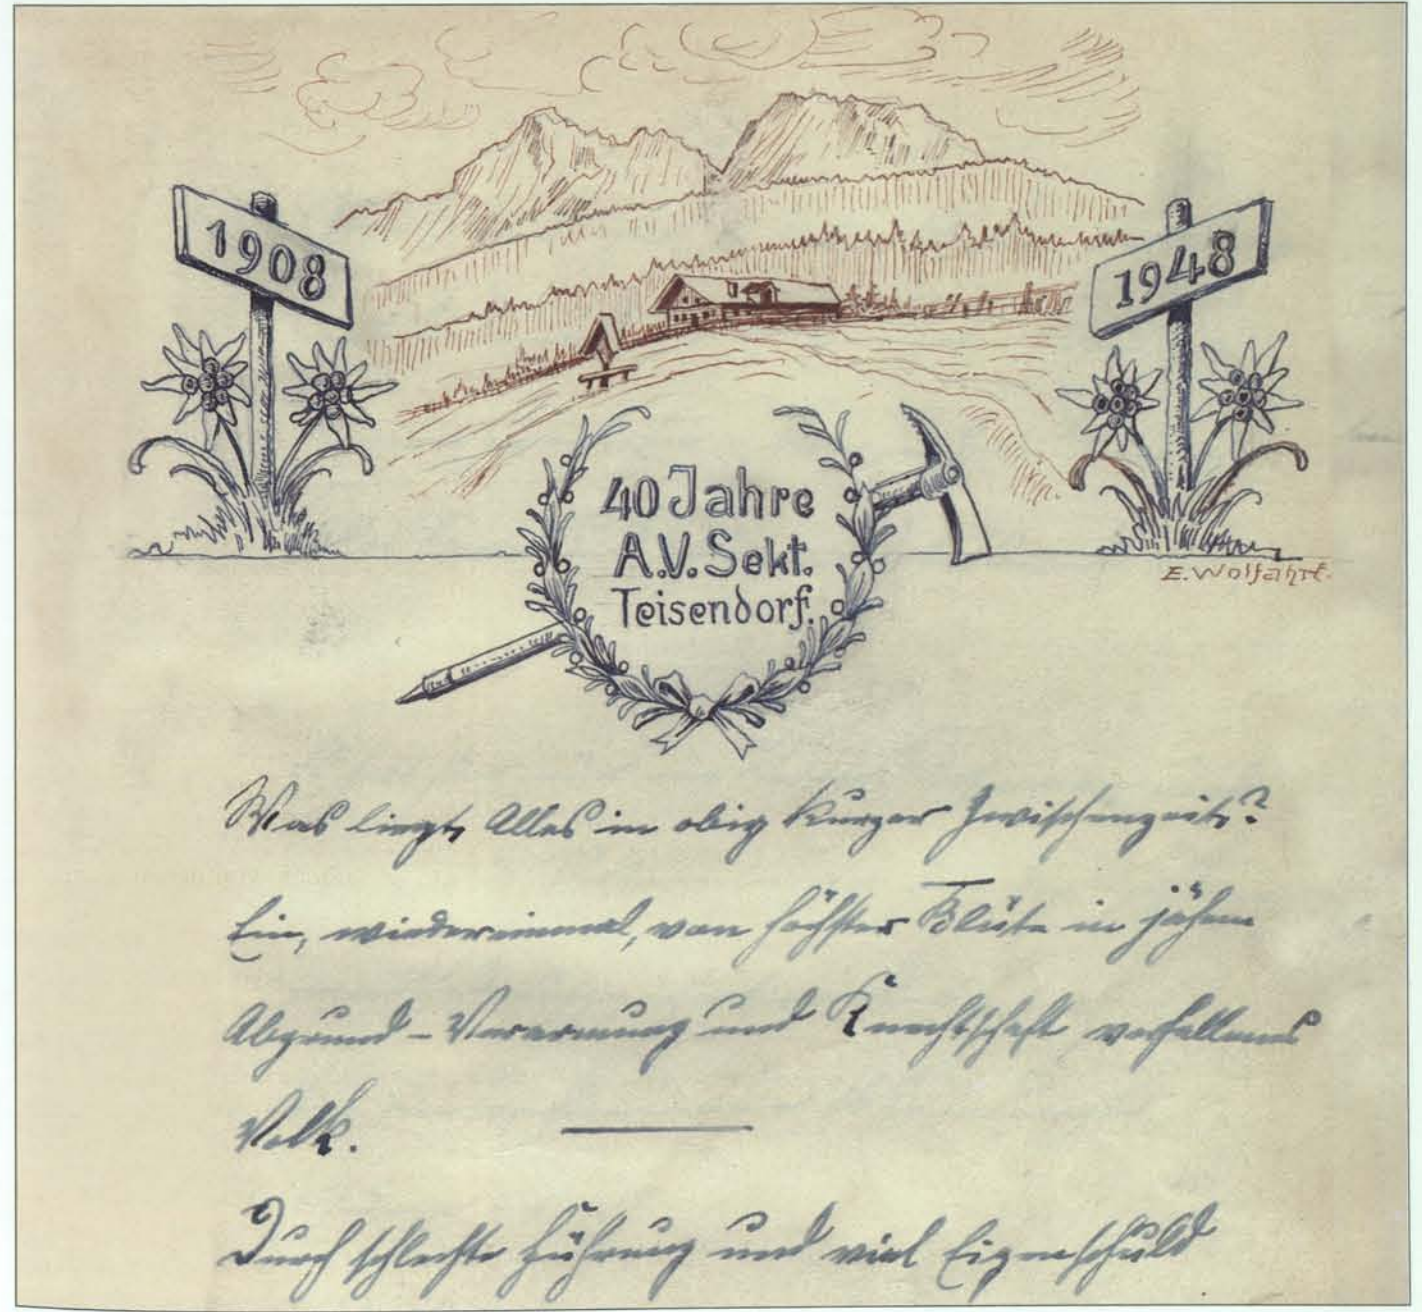 1908
1948
40 Jahre
A.V. Sekt.
Teisendorf.
E. Wolfahrt.
Was liegt, Alles in obig kurzer Zwischenzeit?
Ein, wiedereinmal, von höchster Blüte in jähem
Abgrund - Verarmung und Knechtschaft verfallenes
Volk.
Durch schlechte Führung und viel Eigenschuld